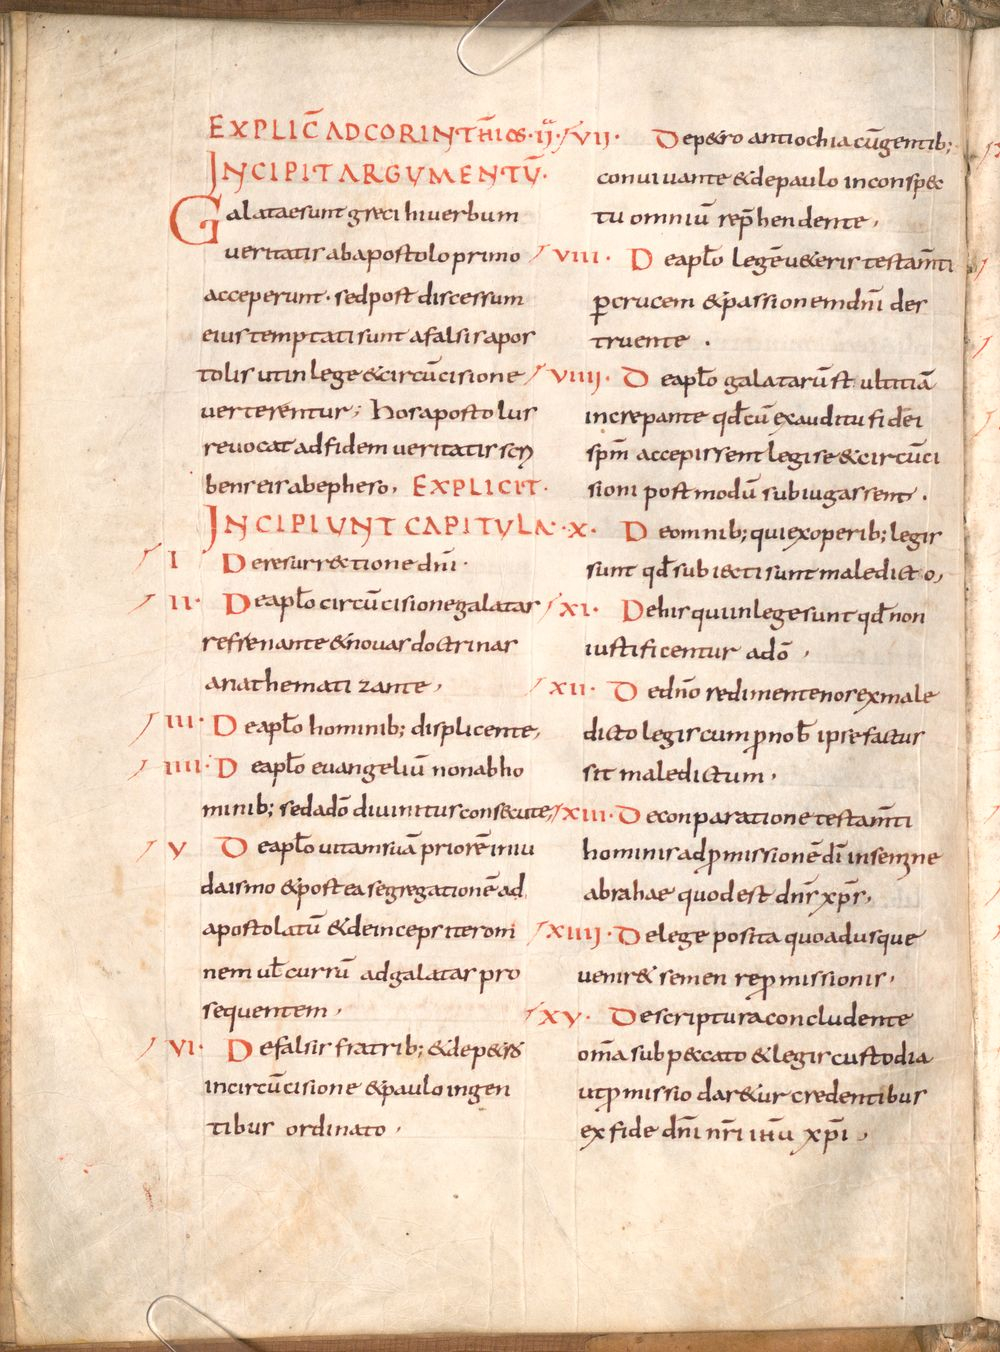 EXPLIC̄ AD CORINTH̄IOS · II ·
INCIPIT ARGUMENTŪ ·
Galatae sunt greci hi verbum
veritatis ab apostolo primo
acceperunt · sed post discessum
eius temptati sunt a falsis apos
tolis ut in lege & circūcisione
verterentur; hos apostolus
revocat ad fidem veritatis scri
bens eis ab epheso, EXPLICIT ·
INCIPIUNT CAPITULA ·
I De resurr&tione dn̄i ·
II · De apl̄o circūcisione galatas
refrenante & novas doctrinas
anathematizante,
III · De apl̄o hominib; displicente,
IIII · De apl̄o evangeliū non ab ho
minib; sed a dō divinitus consecute,
V De apl̄o vitam suā priorē in iu
daismo & postea segregationē ad
apostolatū & deinceps itero in
nem ul̄ cursū ad galatas pro
sequentem,
VI · De falsis fratrib; & de p&ro
in circūcisione & paulo in gen
tibus ordinato,
VII · De p&ro antiochia cū gentib;
convivante & de paulo in conspec
tu omniū rep̄hendente,
VIII · De apl̄o legē u&eris testam̄ti
ꝑ crucem & passionem dn̄i des
truente ·
VIIII · De apl̄o galatarū stultitiā
increpante qd̄ cū ex auditu fidei
sp̄m accepissent legi se & circūci
sioni postmodū subiugassent ·
X · De omnib; qui ex operib; legis
sunt qd̄ sub iecti sunt maledicto,
XI · De his qui in lege sunt qd̄ non
iustificentur a dō,
XII · De dn̄o redimente nos ex male
dicto legis cum p̄ nob̄ ipse factus
sit maledictum,
XIII · De conparatione testam̄ti
hominis ad p̄missionē dī in semine
abrahae quod est dn̄s xp̄s,
XIIII · De lege posita quo adusque
venir& semen rep̄missionis,
XV · De scriptura concludente
om̄a sub p&cato & legis custodia
ut p̄missio dar&ur credentibus
ex fide dn̄i nr̄i ih̄u xp̄i,